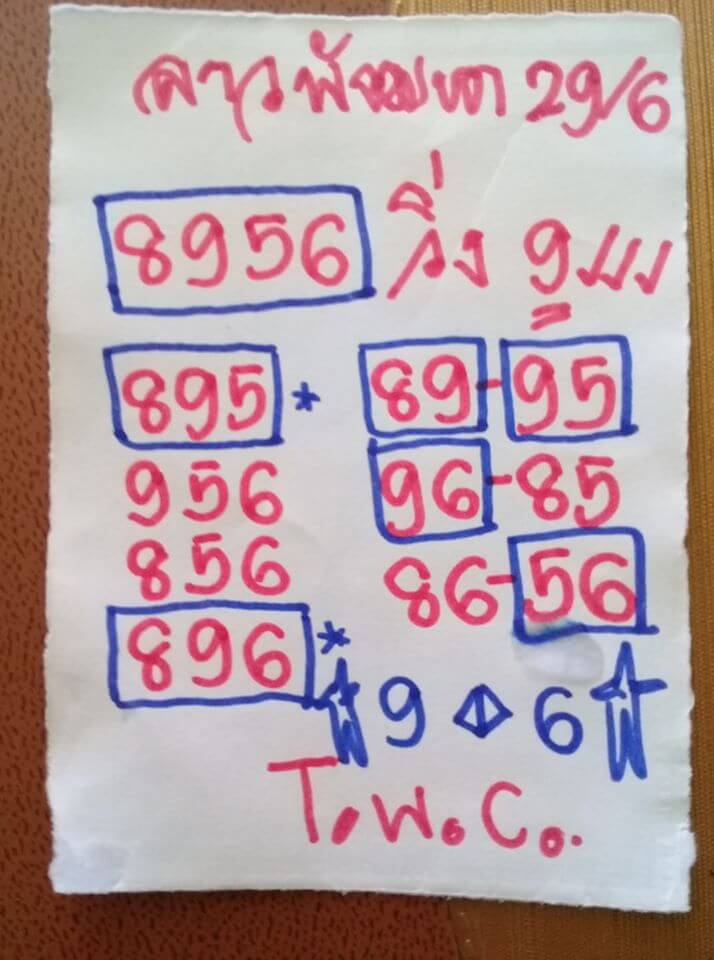 ลาวพัฒนา 29/6
8956 วิ่ง 9 บน
895 * 89-95
956 96-85
856 86-56
896 *
9 6
T.พ.C.